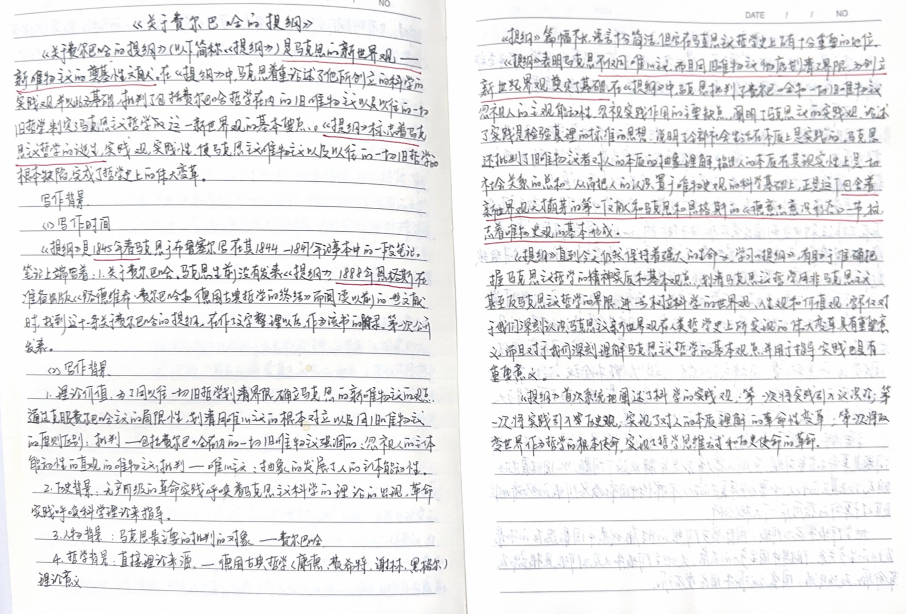 NO
《关于费尔巴哈的提纲》
《关于费尔巴哈的提纲》(以下简称《提纲》)是马克思的新世界观——
新唯物主义的奠基性文献。在《提纲》中,马克思着重论述了他所创立的科学的
实践观,并以此为基础,批判了包括费尔巴哈哲学在内的旧唯物主义以及以往的一切
旧哲学,制定了马克思主义哲学这一新世界观的基本要点。《提纲》标志着马克
思主义哲学的诞生,实践观,实践性,使马克思主义唯物主义以及以往的一切旧哲学的
根本缺陷,完成了哲学史上的伟大变革。
写作背景
(1)写作时间
《提纲》是1845年春马克思于布鲁塞尔在其1844—1847年记事本中的一段笔记。
笔记上端写着:1.关于费尔巴哈,马克思生前没有发表《提纲》,1888年恩格斯在
准备出版《路德维希·费尔巴哈和德国古典哲学的终结》而阅读以前的文献
时,找到这十一条关于费尔巴哈的提纲。在作文字整理以后,作为该书的附录,第一次公开
发表。
(2)写作背景
1.理论价值:为了同以往一切旧哲学划清界限,确立马克思的新唯物主义的观点,
通过克服费尔巴哈主义的局限性,划清同唯心主义的根本对立以及同旧唯物主义
的原则区别,批判——包括费尔巴哈在内的一切旧唯物主义强调的、忽视人的主体
能动性的直观的唯物主义;批判——唯心主义:抽象的发展了人的主体能动性。
2.历史背景:无产阶级的革命实践呼唤着马克思主义科学的理论的出现,革命
实践呼唤科学理论来指导。
3.人物背景:马克思最主要的批判的对象——费尔巴哈
4.哲学背景:直接理论来源——德国古典哲学(康德、费希特、谢林、黑格尔)
理论意义
DATE / / NO
《提纲》篇幅不大,语言十分简洁,但它在马克思主义哲学史上占有十分重要的地位。
《提纲》表明马克思不仅同唯心主义,而且同旧唯物主义彻底划清界限,为创立
新世界观奠定基础。在《提纲》中,马克思批判了费尔巴哈和一切旧唯物主义
忽视人的主观能动性,忽视实践作用的主要缺点,阐明了马克思主义的实践观,论述
了实践是检验真理的标准的思想,说明了全部社会生活在本质上是实践的,马克思
还批判了旧唯物主义者对人的本质的抽象理解,指出人的本质在其现实性上是一切
社会关系的总和,从而把人的认识置于唯物史观的科学基础上,正是这个包含着
新世界观天才萌芽的第一个文献和马克思和恩格斯的《德意志意识形态》一书,标
志着唯物史观的基本形成。
《提纲》直到今天仍然保持着强大的生命力。学习《提纲》,有助于准确把
握马克思主义哲学的精神实质和基本观点,划清马克思主义哲学同非马克思主义
甚至反马克思主义哲学的界限,进一步树立科学的世界观、人生观和价值观,它不仅对
于我们深刻认识马克思主义新世界观在人类哲学史上所实现的伟大变革具有重要意
义,而且对于我们深刻理解马克思主义哲学的基本观点,并用于指导实践也具有
重要意义。
《提纲》首次系统地阐述了科学的实践观,第一次将实践引入认识论;第
一次将实践引入历史观,实现了对人的本质理解的革命性变革;第一次将改
变世界作为哲学的根本使命,实现了哲学思维方式和历史使命的革命。